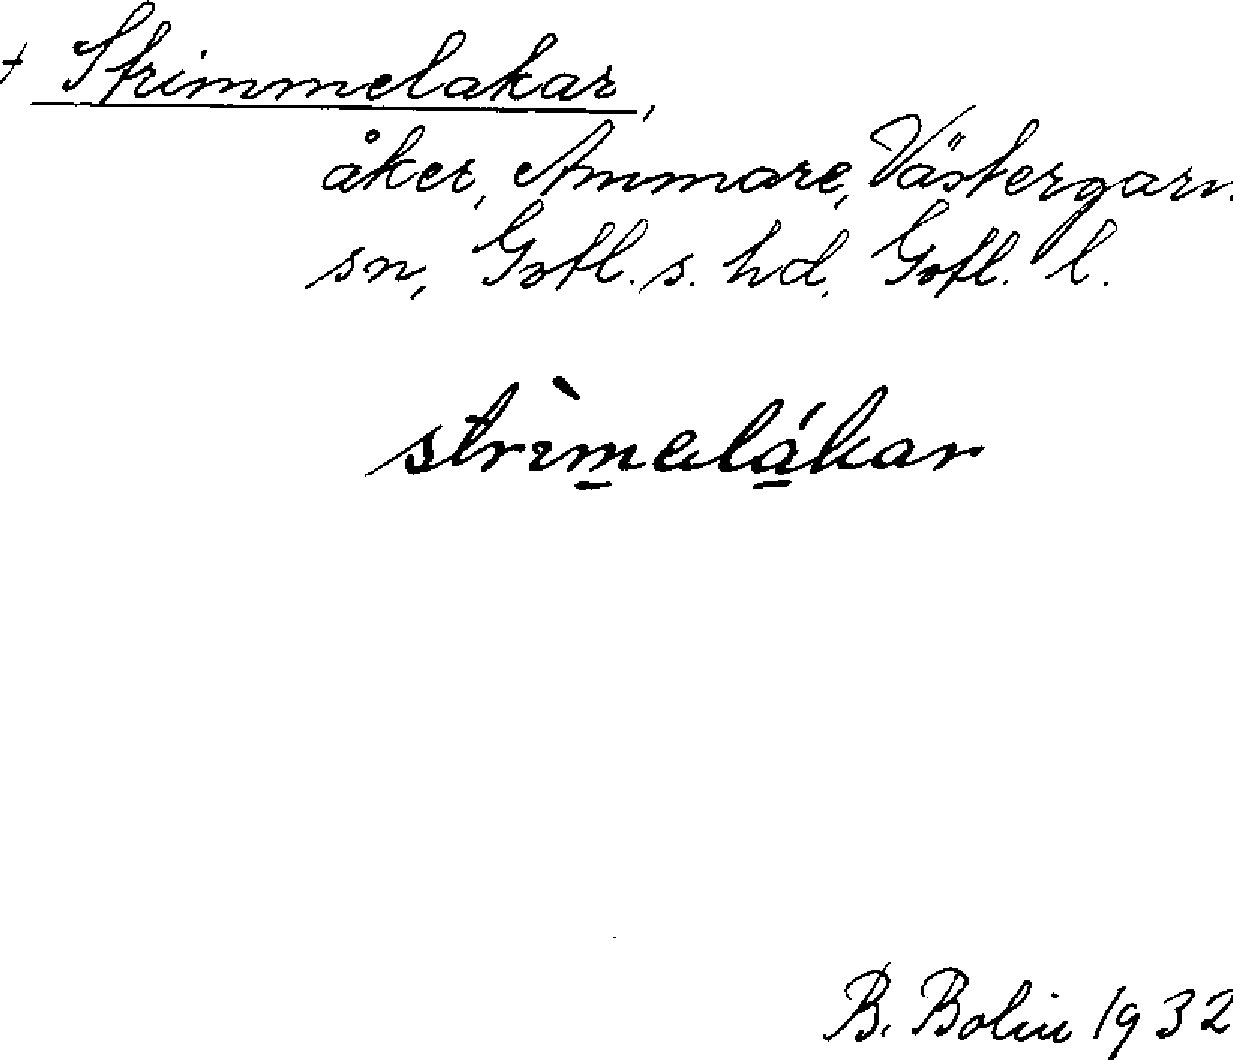 + Strimmelakar,
åker, Ammare, Västergarn
sn, Gotl. s. hd, Gotl. l.
strìmelákar
B. Bolin 1932